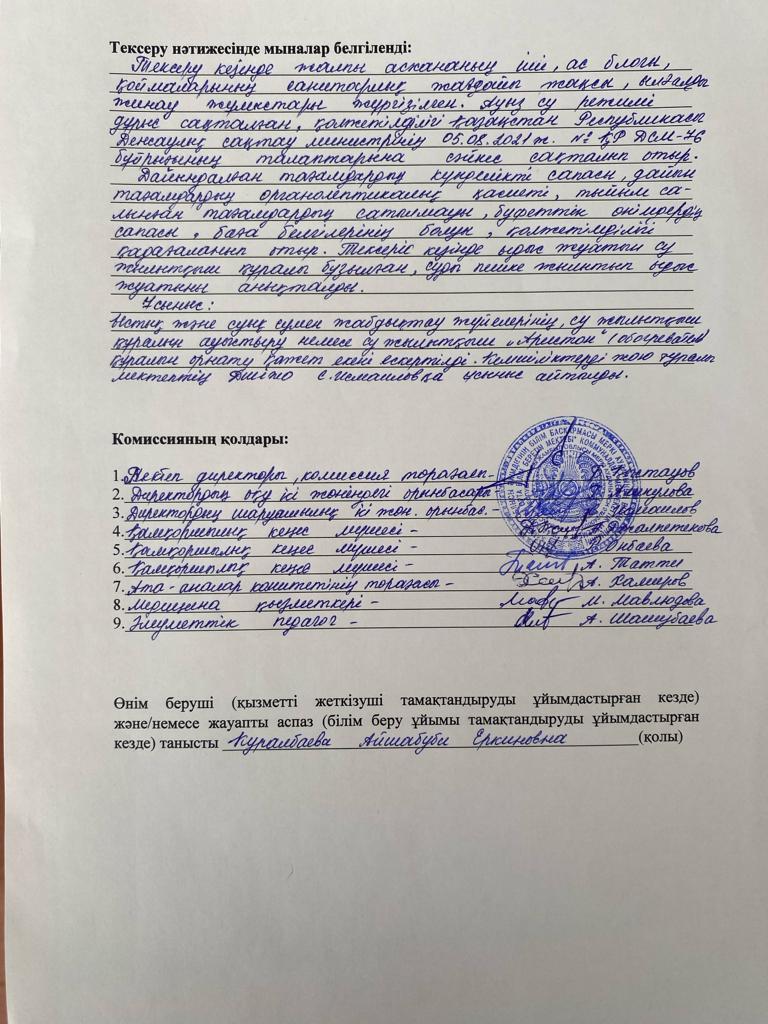 Тексеру нәтижесінде мыналар белгіленді:
Тексеру кезінде жалпы асхананың іші, ас блогы,
қоймаларының санитарлық жағдайы жақсы, ылғалды
жинау жұмыстары жүргізілген. Ауыз су режимі
дұрыс сақталған, қолжетілділігі Қазақстан Республикасы
Денсаулық сақтау министрінің 05.08.2021 ж. № ҚР ДСМ-76
бұйрығының талаптарына сәйкес сақталып отыр.
Дайындалған тағамдардың күнделікті сапасы, дайын
тағамдардың органолептикалық қасиеті, тыйым са-
лынған тағамдардың сатылмауы, буфеттік өнімдердің
сапасы, баға белгілерінің болуы, қолжетімділігі
қадағаланып отыр. Тексеріс кезінде ыдыс жуатын су
жылытқыш құралы бұзылған, суды пешке жылытып ыдыс
жуатыны анықталды.
Ұсыныс:
Ыстық және суық сумен жабдықтау жүйелерінің, су жылытқыш
құралын ауыстыру немесе су жылытқыш „Аристон"(обогреватель)
құралын орнату қажет екені ескертілді. Кемшіліктерді жою туралы
мектептің С.Исмаиловқа ұсыныс айтылды.
Комиссияның қолдары:
1. Мектеп директоры, комиссия төрағасы-
2. Директордың оқу ісі жөніндегі орынбасары
3. Директордың шаруашылық ісі жөн. орынбас.-
4. Қамқоршылық кеңес мүшесі -
5. Қамқоршылық кеңес мүшесі -
6. Қамқоршылық кеңес мүшесі - А. Татти
7. Ата-аналар комитетінің төрағасы- А. Хамиров
8. Медицина қызметкері - М. Мавлюдова
9. Әлеуметтік педагог - А. Шашубаева
Өнім беруші (қызметті жеткізуші тамақтандыруды ұйымдастырған кезде)
және/немесе жауапты аспаз (білім беру ұйымы тамақтандыруды ұйымдастырған
кезде) танысты Куралбаева Айшабуби Еркиновна (қолы)